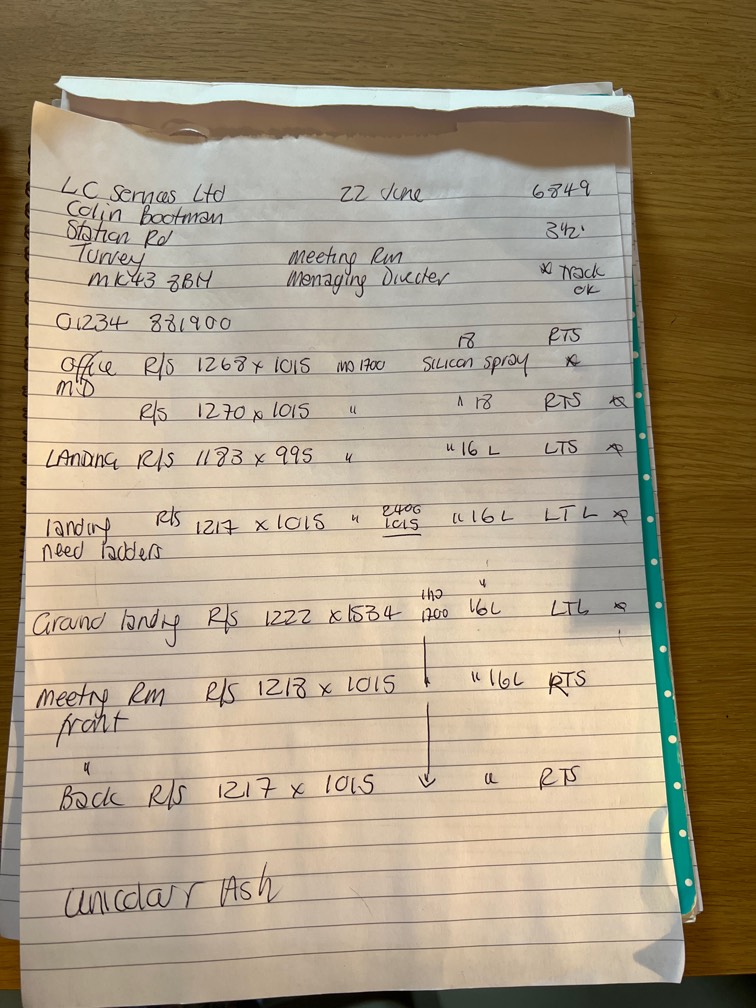 LC Services Ltd 22 June 6849
Colin Bootman
Station Rd 342
Turvey Meeting Rm
MK43 8BH Managing Director * Track
OK
01234 881900
18 RTS
Office R/S 1268 x 1015 MO 1700 Silicon Spray *
MD
R/S 1270 x 1015 " " 18 RTS *
LANDING R/S 1183 x 995 " " 16 L LTS *
landing R/S 1217 x 1015 " 2400 " 16 L LTL *
need ladders 1015
Ground landing R/S 1222 x 1534 1700 " 16L LTL *
Meeting Rm R/S 1218 x 1015 " 16L RTS
front
"
Back R/S 1217 x 1015 " RTS
Unicolour Ash